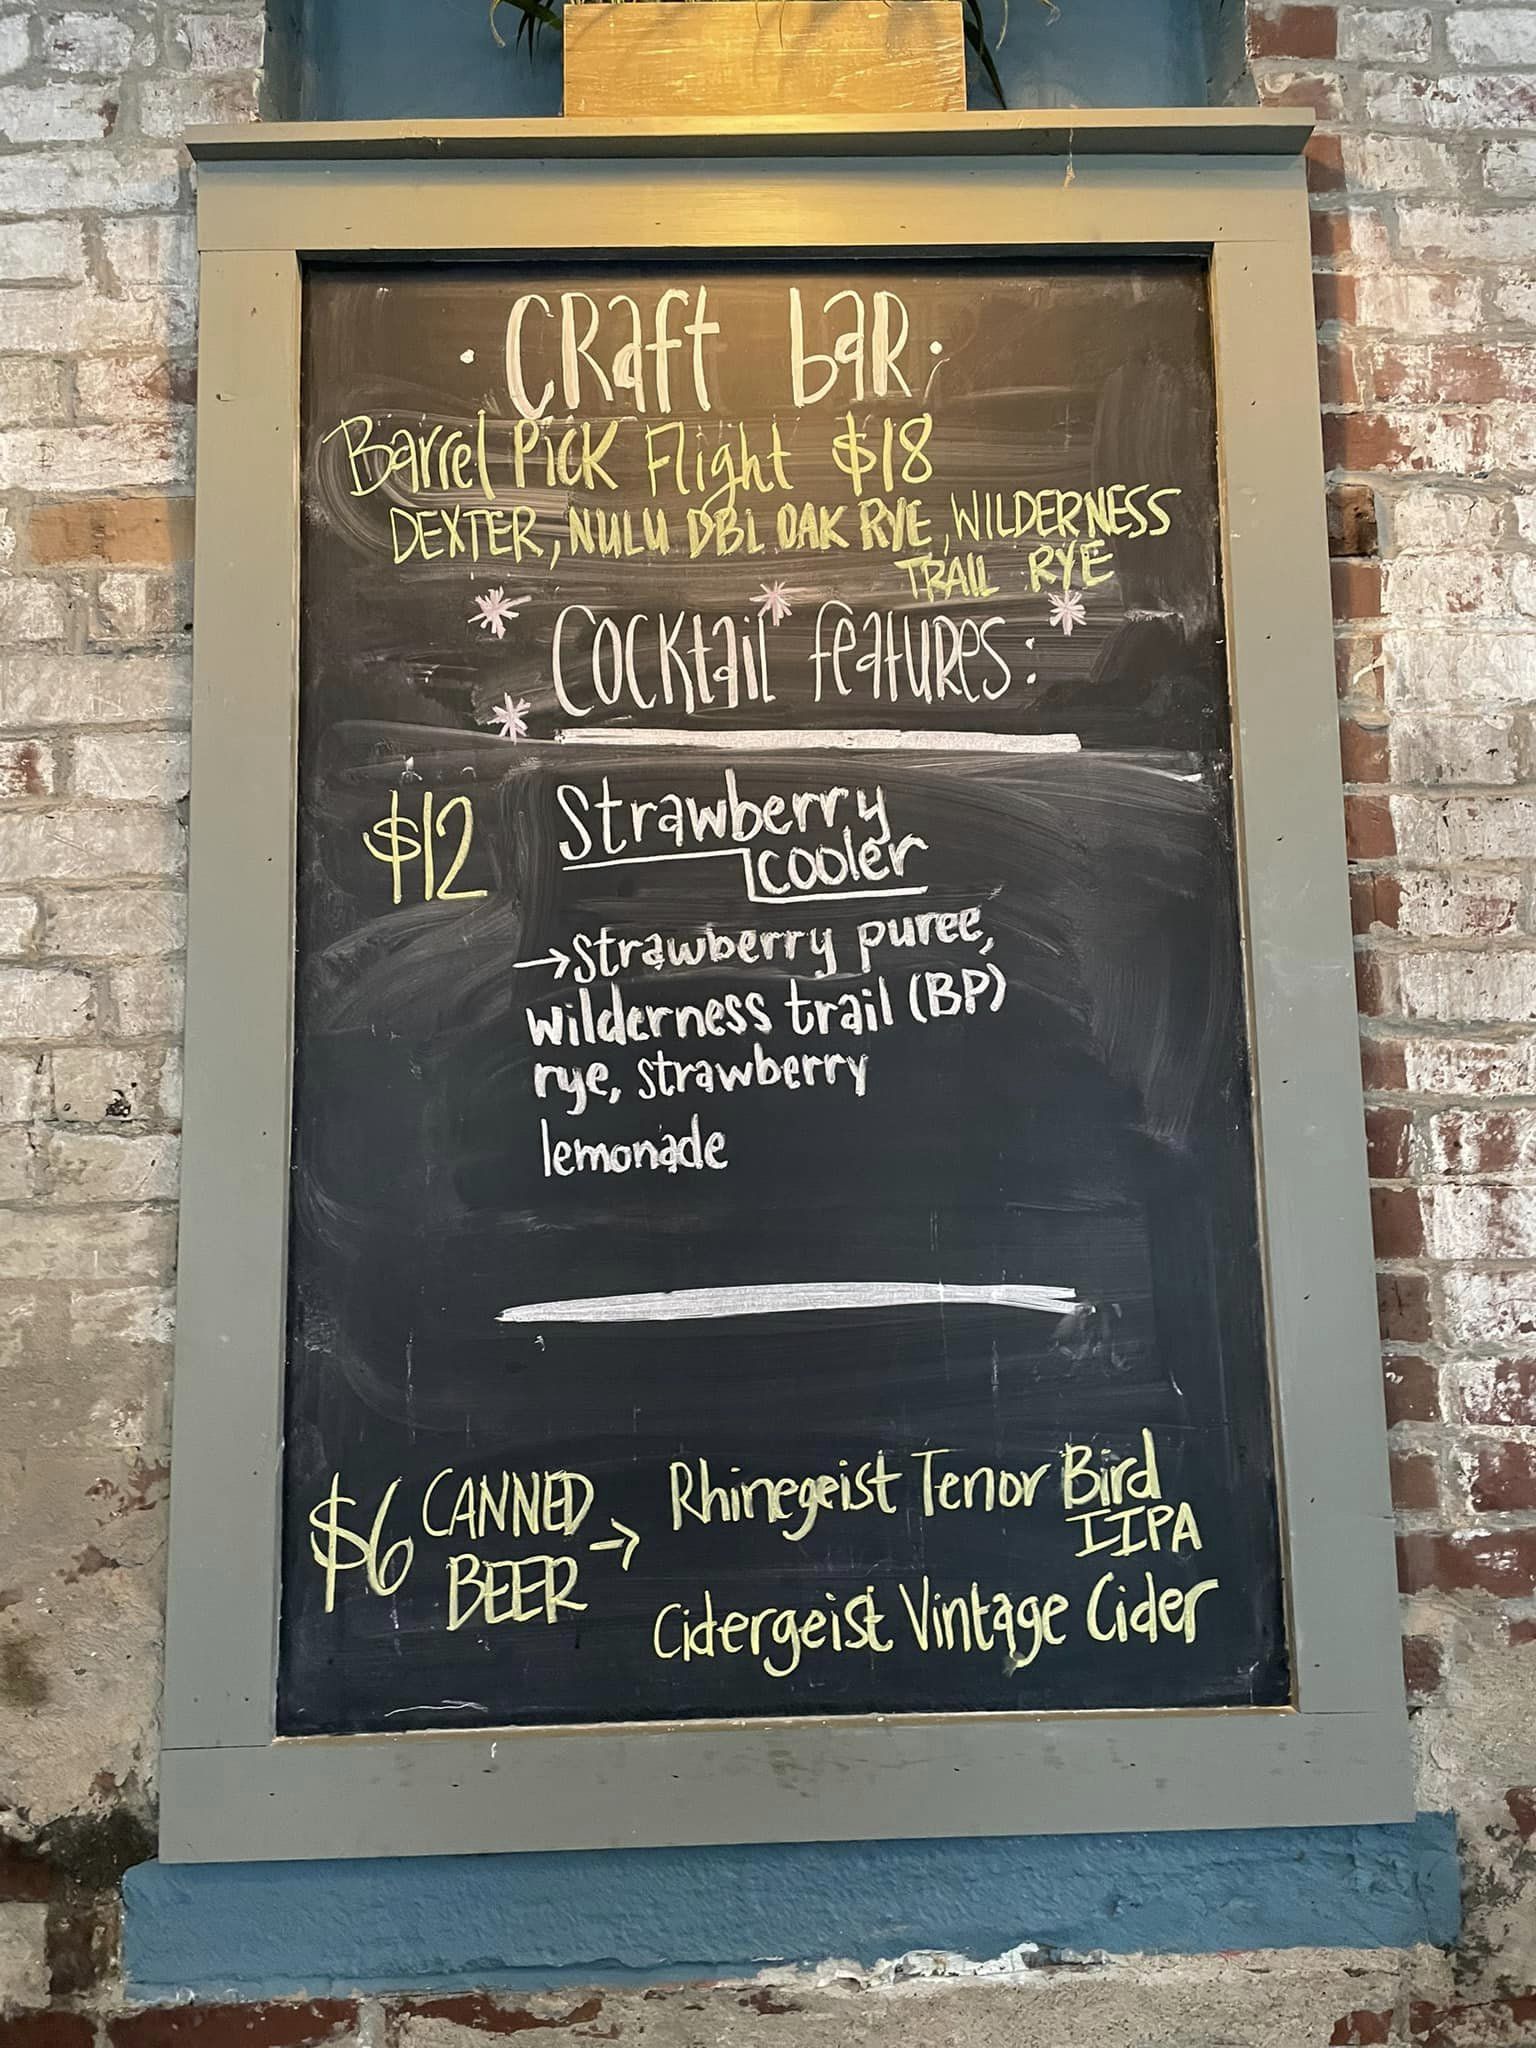 · CRaft baR ·
Barrel Pick Flight $18
DEXTER, NULU DBL OAK RYE, WILDERNESS
TRAIL RYE
Cocktail features:
$12 Strawberry
cooler
→strawberry puree,
wilderness trail (BP)
rye, strawberry
lemonade
$6 CANNED BEER → Rhinegeist Tenor Bird
IIPA
Cidergeist Vintage Cider